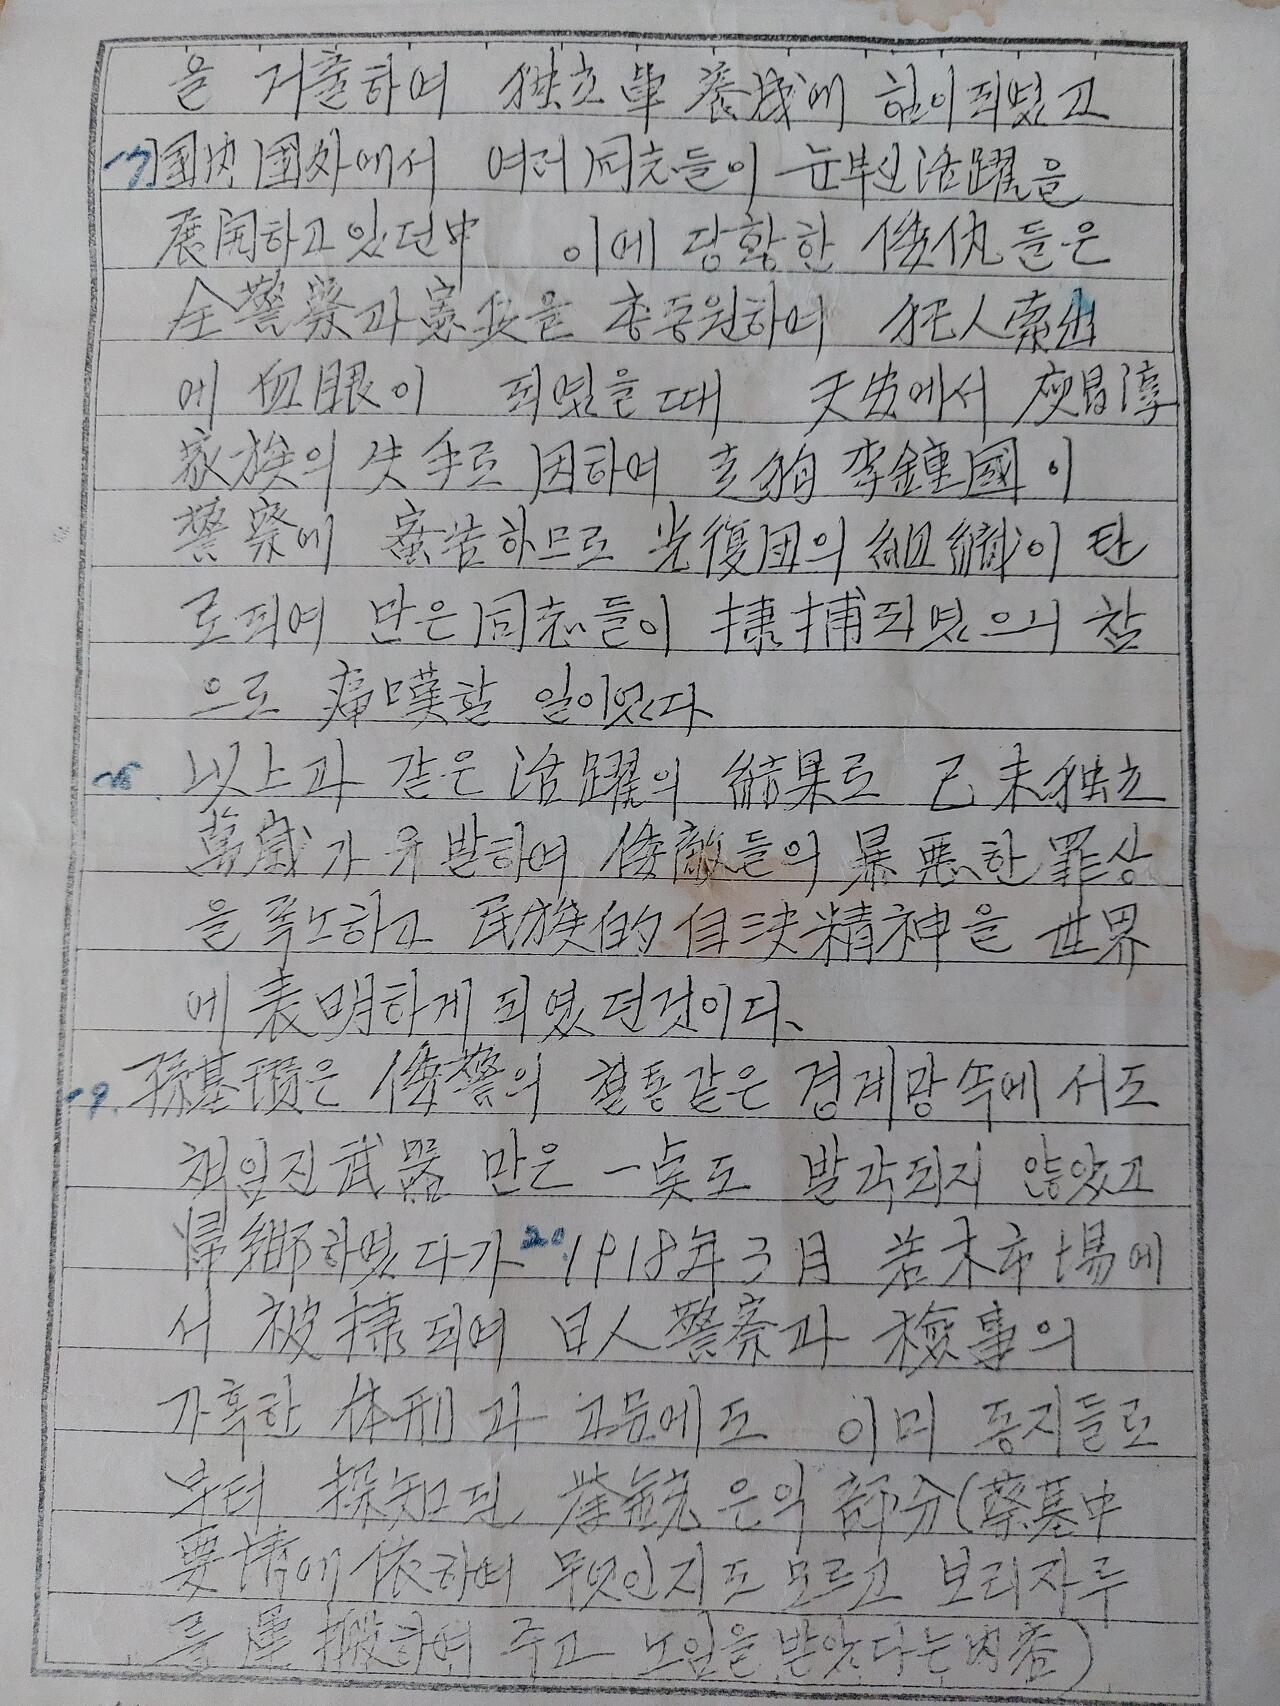 을 거출하여 独立軍 養成에 힘이되였고
17 国内 國外에서 여러 同志들이 눈부신 活躍을
展開하고 있던中 이에 당황한 倭仇들은
全警察과 憲兵을 총동원하여 犯人索出
에 血眼이 되였을 때 天安에서
家族의 失手로 因하여 走狗 李鍾國이
警察에 密告하므로 光復団의 組織이 탄
로되여 많은 同志들이 捷捕되였으니 참
으로 痛嘆할 일이였다
18. 以上과 같은 活躍의 結果로 己未独立
萬歲가 유발하여 倭敵들의 暴悪한 罪상
을 폭노하고 民族的 自决精神을 世界
에 表明하게 되였던것이다.
19. 孫基瓚은 倭警의 철통같은 경계망속에서도
책임진 武器 만은 一矣도 발각되지 않았고
帰郷하였다가 20. 1918年 3月 若木市場에
서 被捷되여 日人警察과 検事의
가혹한 体刑과 고문에도 이미 동지들로
부터 探知된 은익 部分(蔡基中
要請에 依하여 무엇인지도 모르고 보리자루
를 運搬하여 주고 노임을 받앗다는 内容)